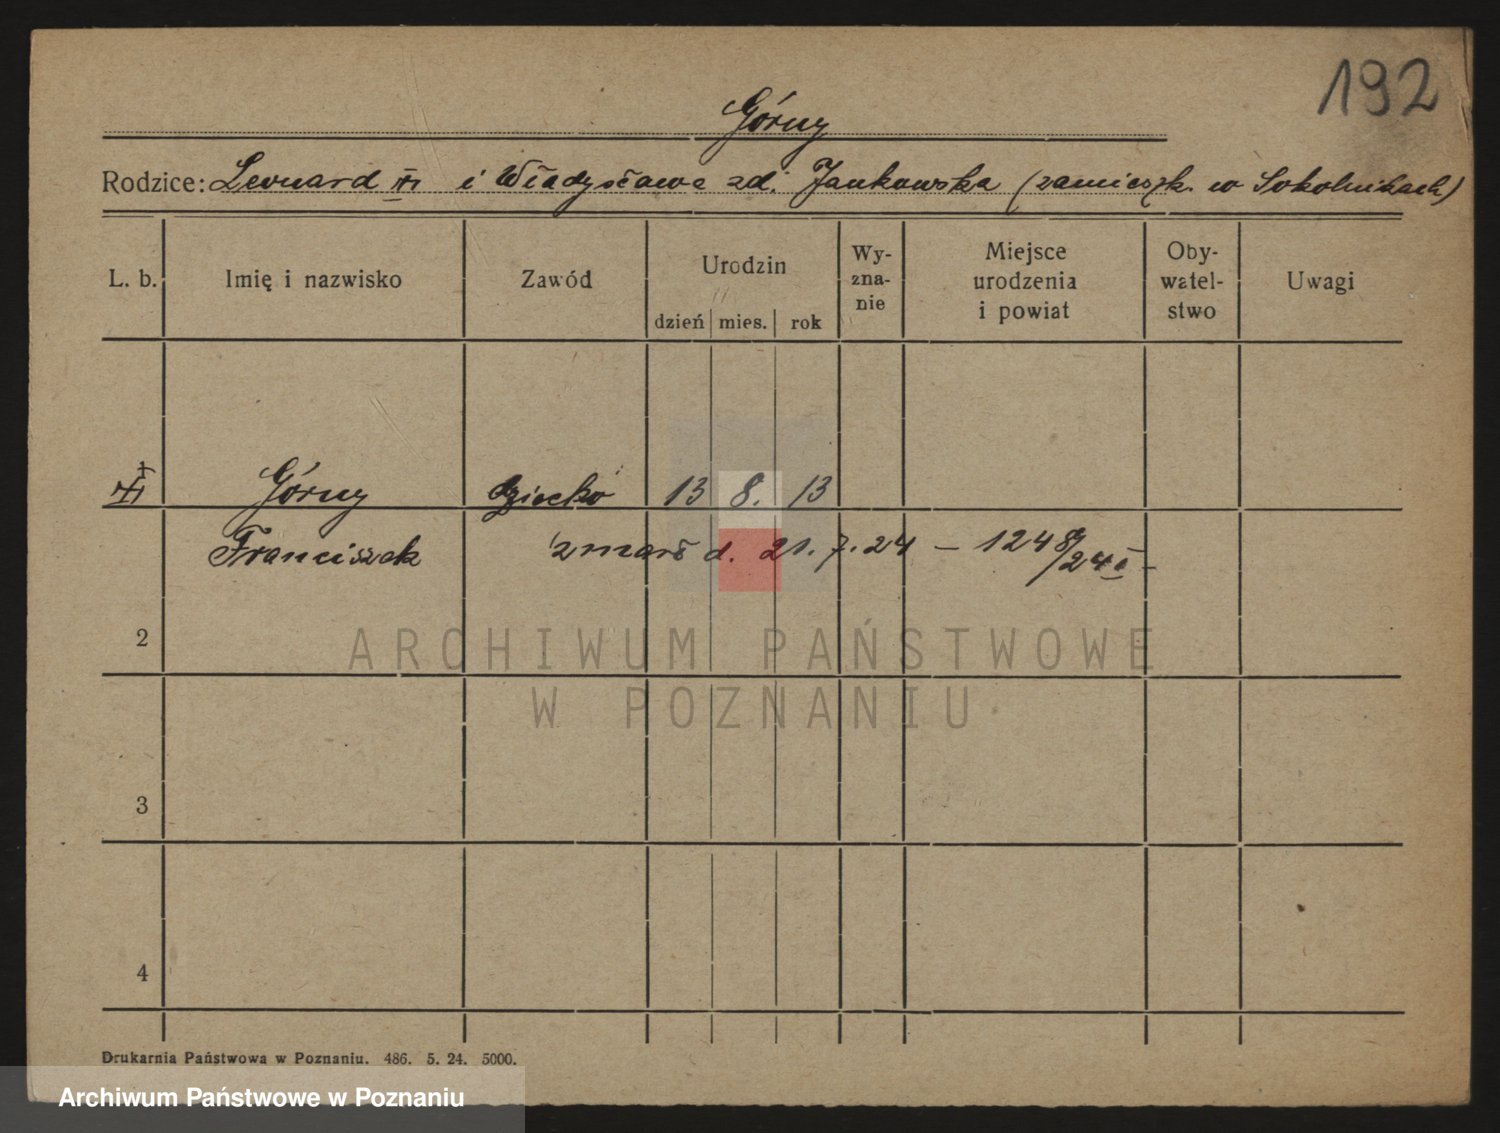 192
Górny
Rodzice: Leonard i Władysława zd. Jankowska (zamieszk. w Sokolnikach)
L. b. Imię i nazwisko Zawód Urodzin dzień mies. rok Wy-zna-nie Miejsce urodzenia i powiat Oby-watel-stwo Uwagi
Górny dziecko 13 8. 13
Franciszek zmarł d. 21. 7. 24 — 1248/24
2
3
4
Drukarnia Państwowa w Poznaniu. 486. 5. 24. 5000.
ARCHIWUM PAŃSTWOWE
W POZNANIU
Archiwum Państwowe w Poznaniu